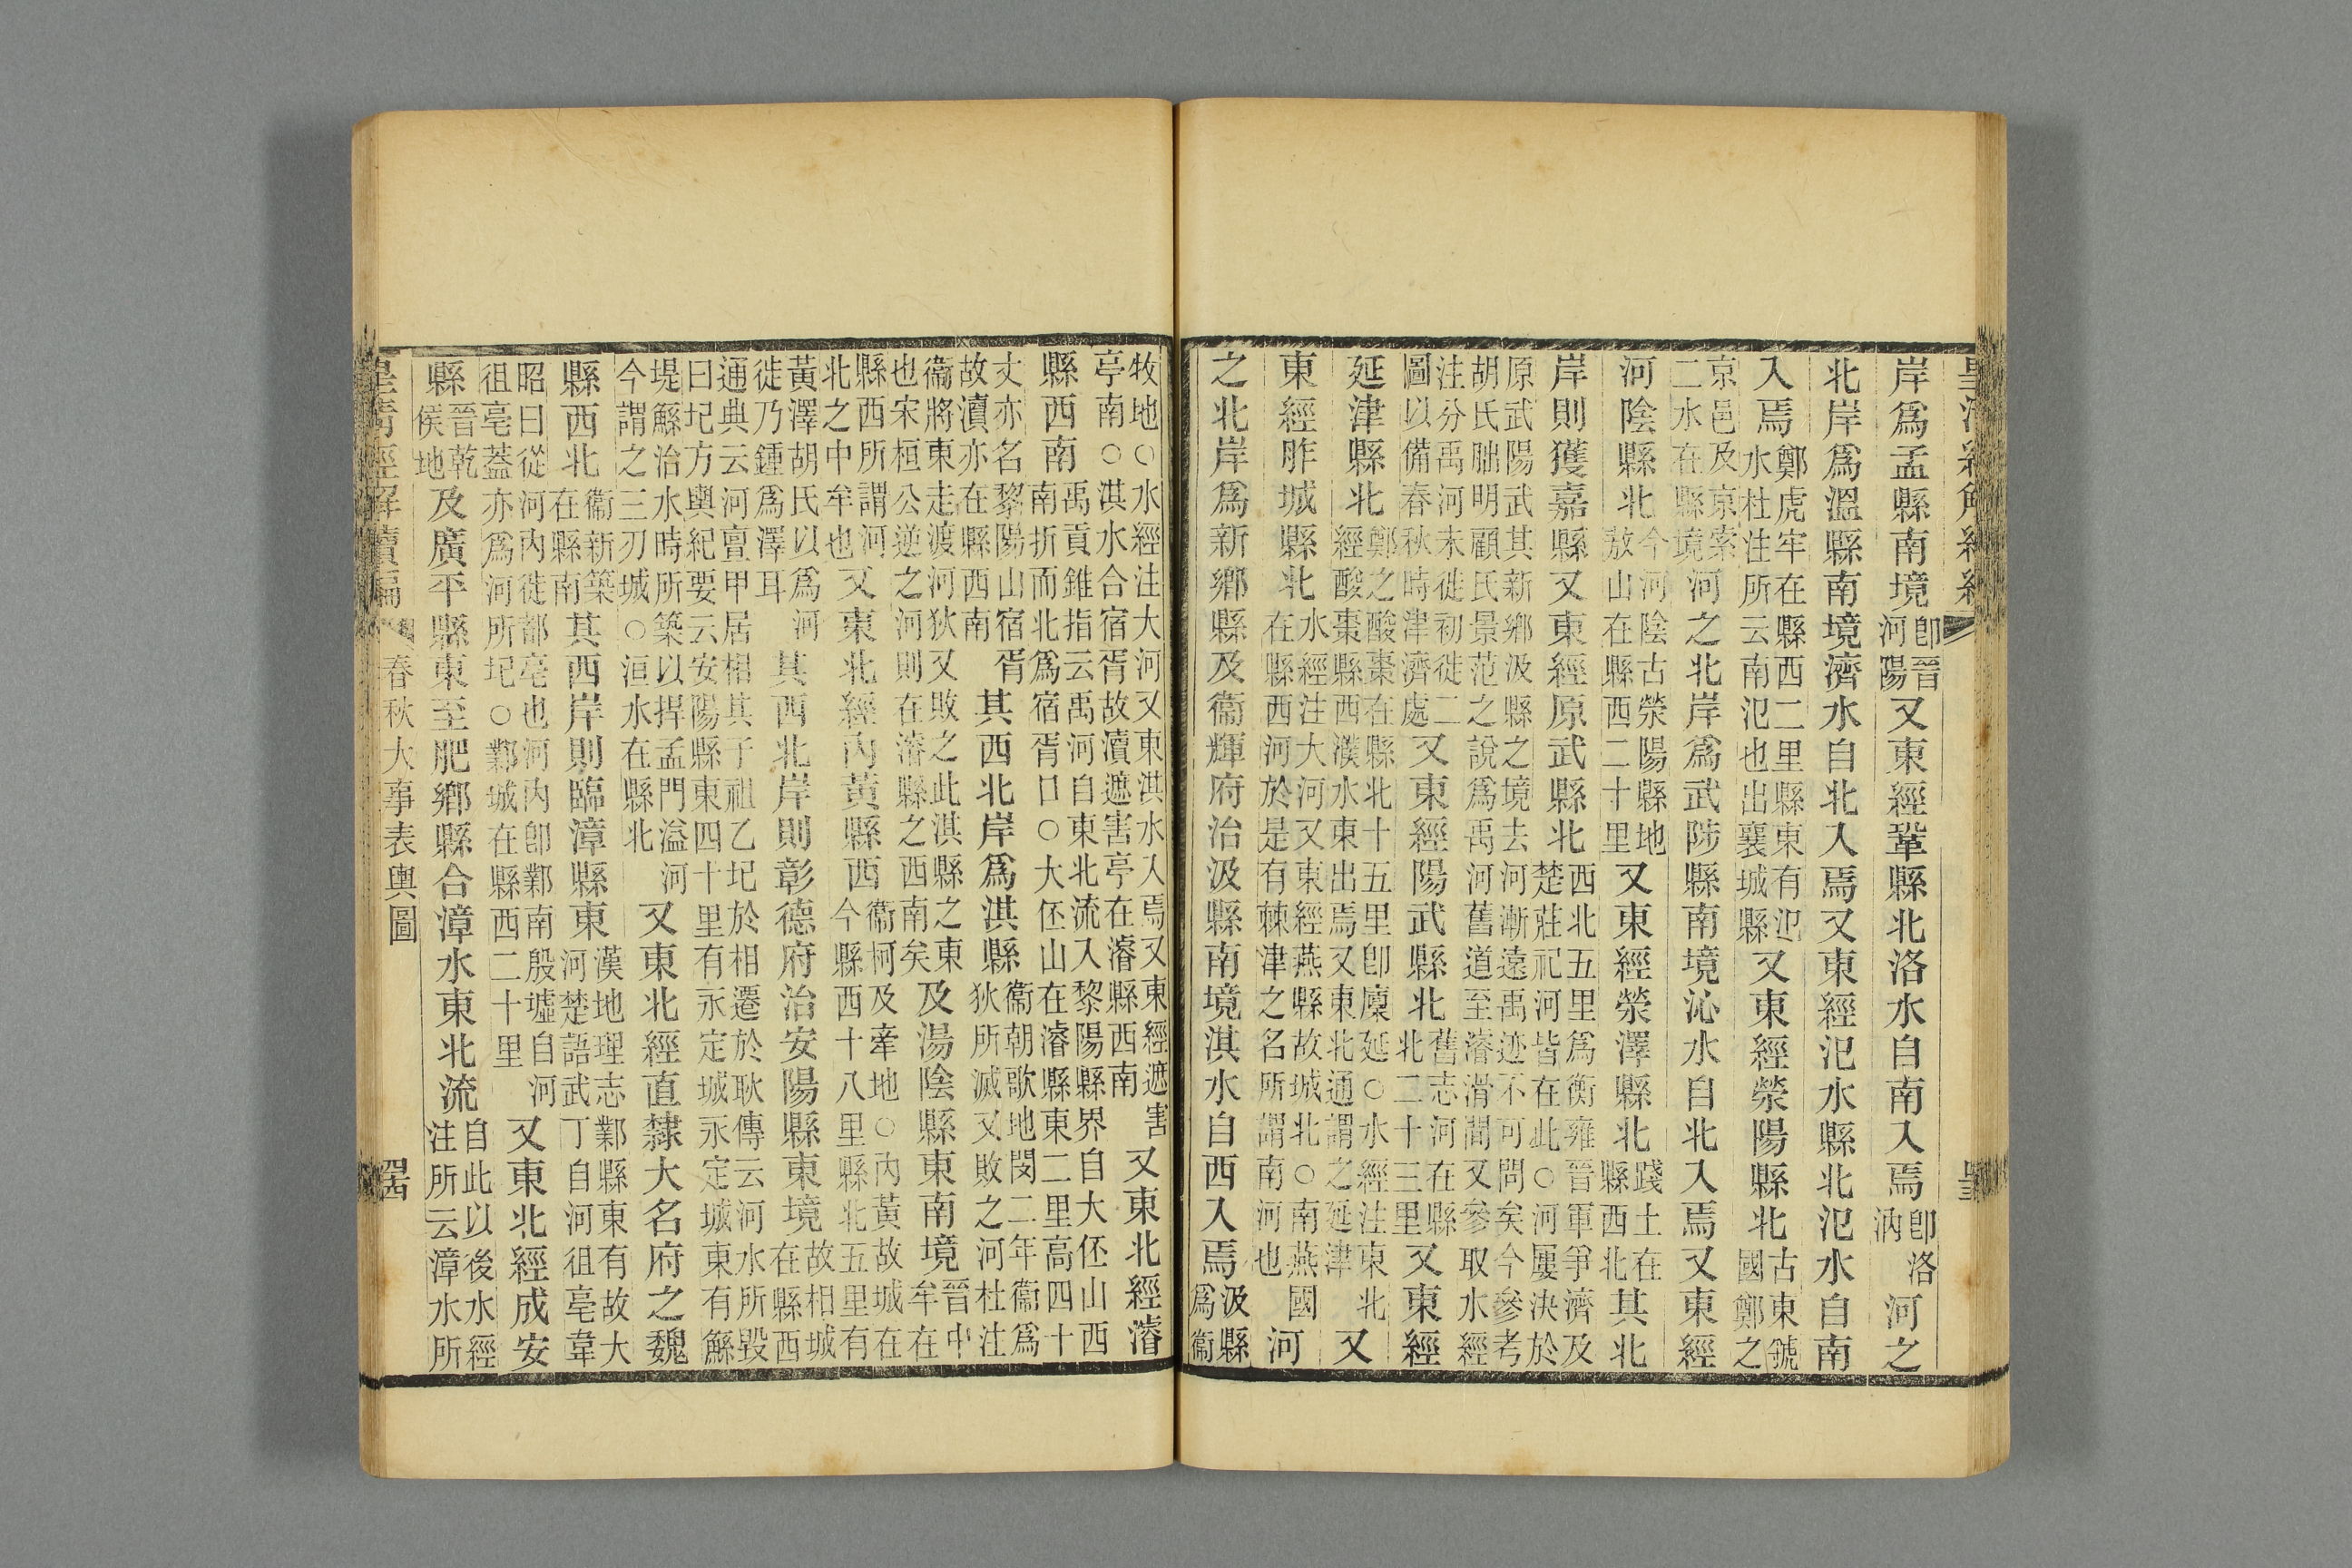 皇清經解續編
岸爲孟縣南境即晉河陽又東經鞏縣北洛水自南入焉即洛汭河之
北岸爲溫縣南境濟水自北入焉又東經汜水縣北汜水自南
入焉鄭虎牢在縣西二里縣東有汜水杜注所云南汜也出襄城縣又東經滎陽縣北古東虢國鄭之
京邑及京索二水在縣境河之北岸爲武陟縣南境沁水自北入焉又東經
河陰縣北今河陰古滎陽縣地敖山在縣西二十里又東經滎澤縣北踐土在縣西北其北
岸則獲嘉縣又東經原武縣北西北五里爲衡雍晉軍爭濟及楚莊祀河皆在此○河屢決於
原武陽武其新鄉汲縣之境去河漸遠禹迹不可問矣今參考胡氏朏明顧氏景范之說爲禹河舊道至濬滑間又參取水經
注分禹河未徙初徙二圖以備春秋時津濟處又東經陽武縣北舊志河在縣北二十三里又東經
延津縣北鄭之酸棗在縣北十五里即廩延○水經注東北經酸棗縣西濮水東出焉又東北通謂之延津又
東經胙城縣北水經注大河又東經燕縣故城北○南燕國在縣西河於是有棘津之名所謂南河也河
之北岸爲新鄉縣及衞輝府治汲縣南境淇水自西入焉汲縣爲衞
牧地○水經注大河又東淇水入焉又東經遮害亭南○淇水合宿胥故瀆遮害亭在濬縣西南又東北經濬
縣西南禹貢錐指云禹河自東北流入黎陽縣界自大伾山西南折而北爲宿胥口○大伾山在濬縣東二里高四十
丈亦名黎陽山宿胥故瀆亦在縣西南其西北岸爲淇縣衞朝歌地閔二年衞爲狄所滅又敗之河杜注
衞將東走渡河狄又敗之此淇縣之東也宋桓公逆之河則在濬縣之西南矣及湯陰縣東南境晉中牟在
縣西所謂河北之中牟也又東北經內黃縣西衞柯及牽地○內黃故城在今縣西十八里縣北五里有
黃澤胡氏以爲河徙乃鍾爲澤耳其西北岸則彰德府治安陽縣東境故相城在縣西
通典云河亶甲居相其子祖乙圮於相遷於耿傳云河水所毀曰圮方輿紀要云安陽縣東四十里有永定城永定城東有鯀
堤鯀治水時所築以捍孟門溢河今謂之三刃城○洹水在縣北又東北經直隸大名府之魏
縣西北衞新築在縣南其西岸則臨漳縣東漢地理志鄴縣東有故大河楚語武丁自河徂亳韋
昭曰從河內徙都亳也河內即鄴南殷墟自河徂亳蓋亦爲河所圮○鄴城在縣西二十里又東北經成安
縣晉乾侯地及廣平縣東至肥鄉縣合漳水東北流自此以後水經注所云漳水所
皇清經解續編 春秋大事表輿圖